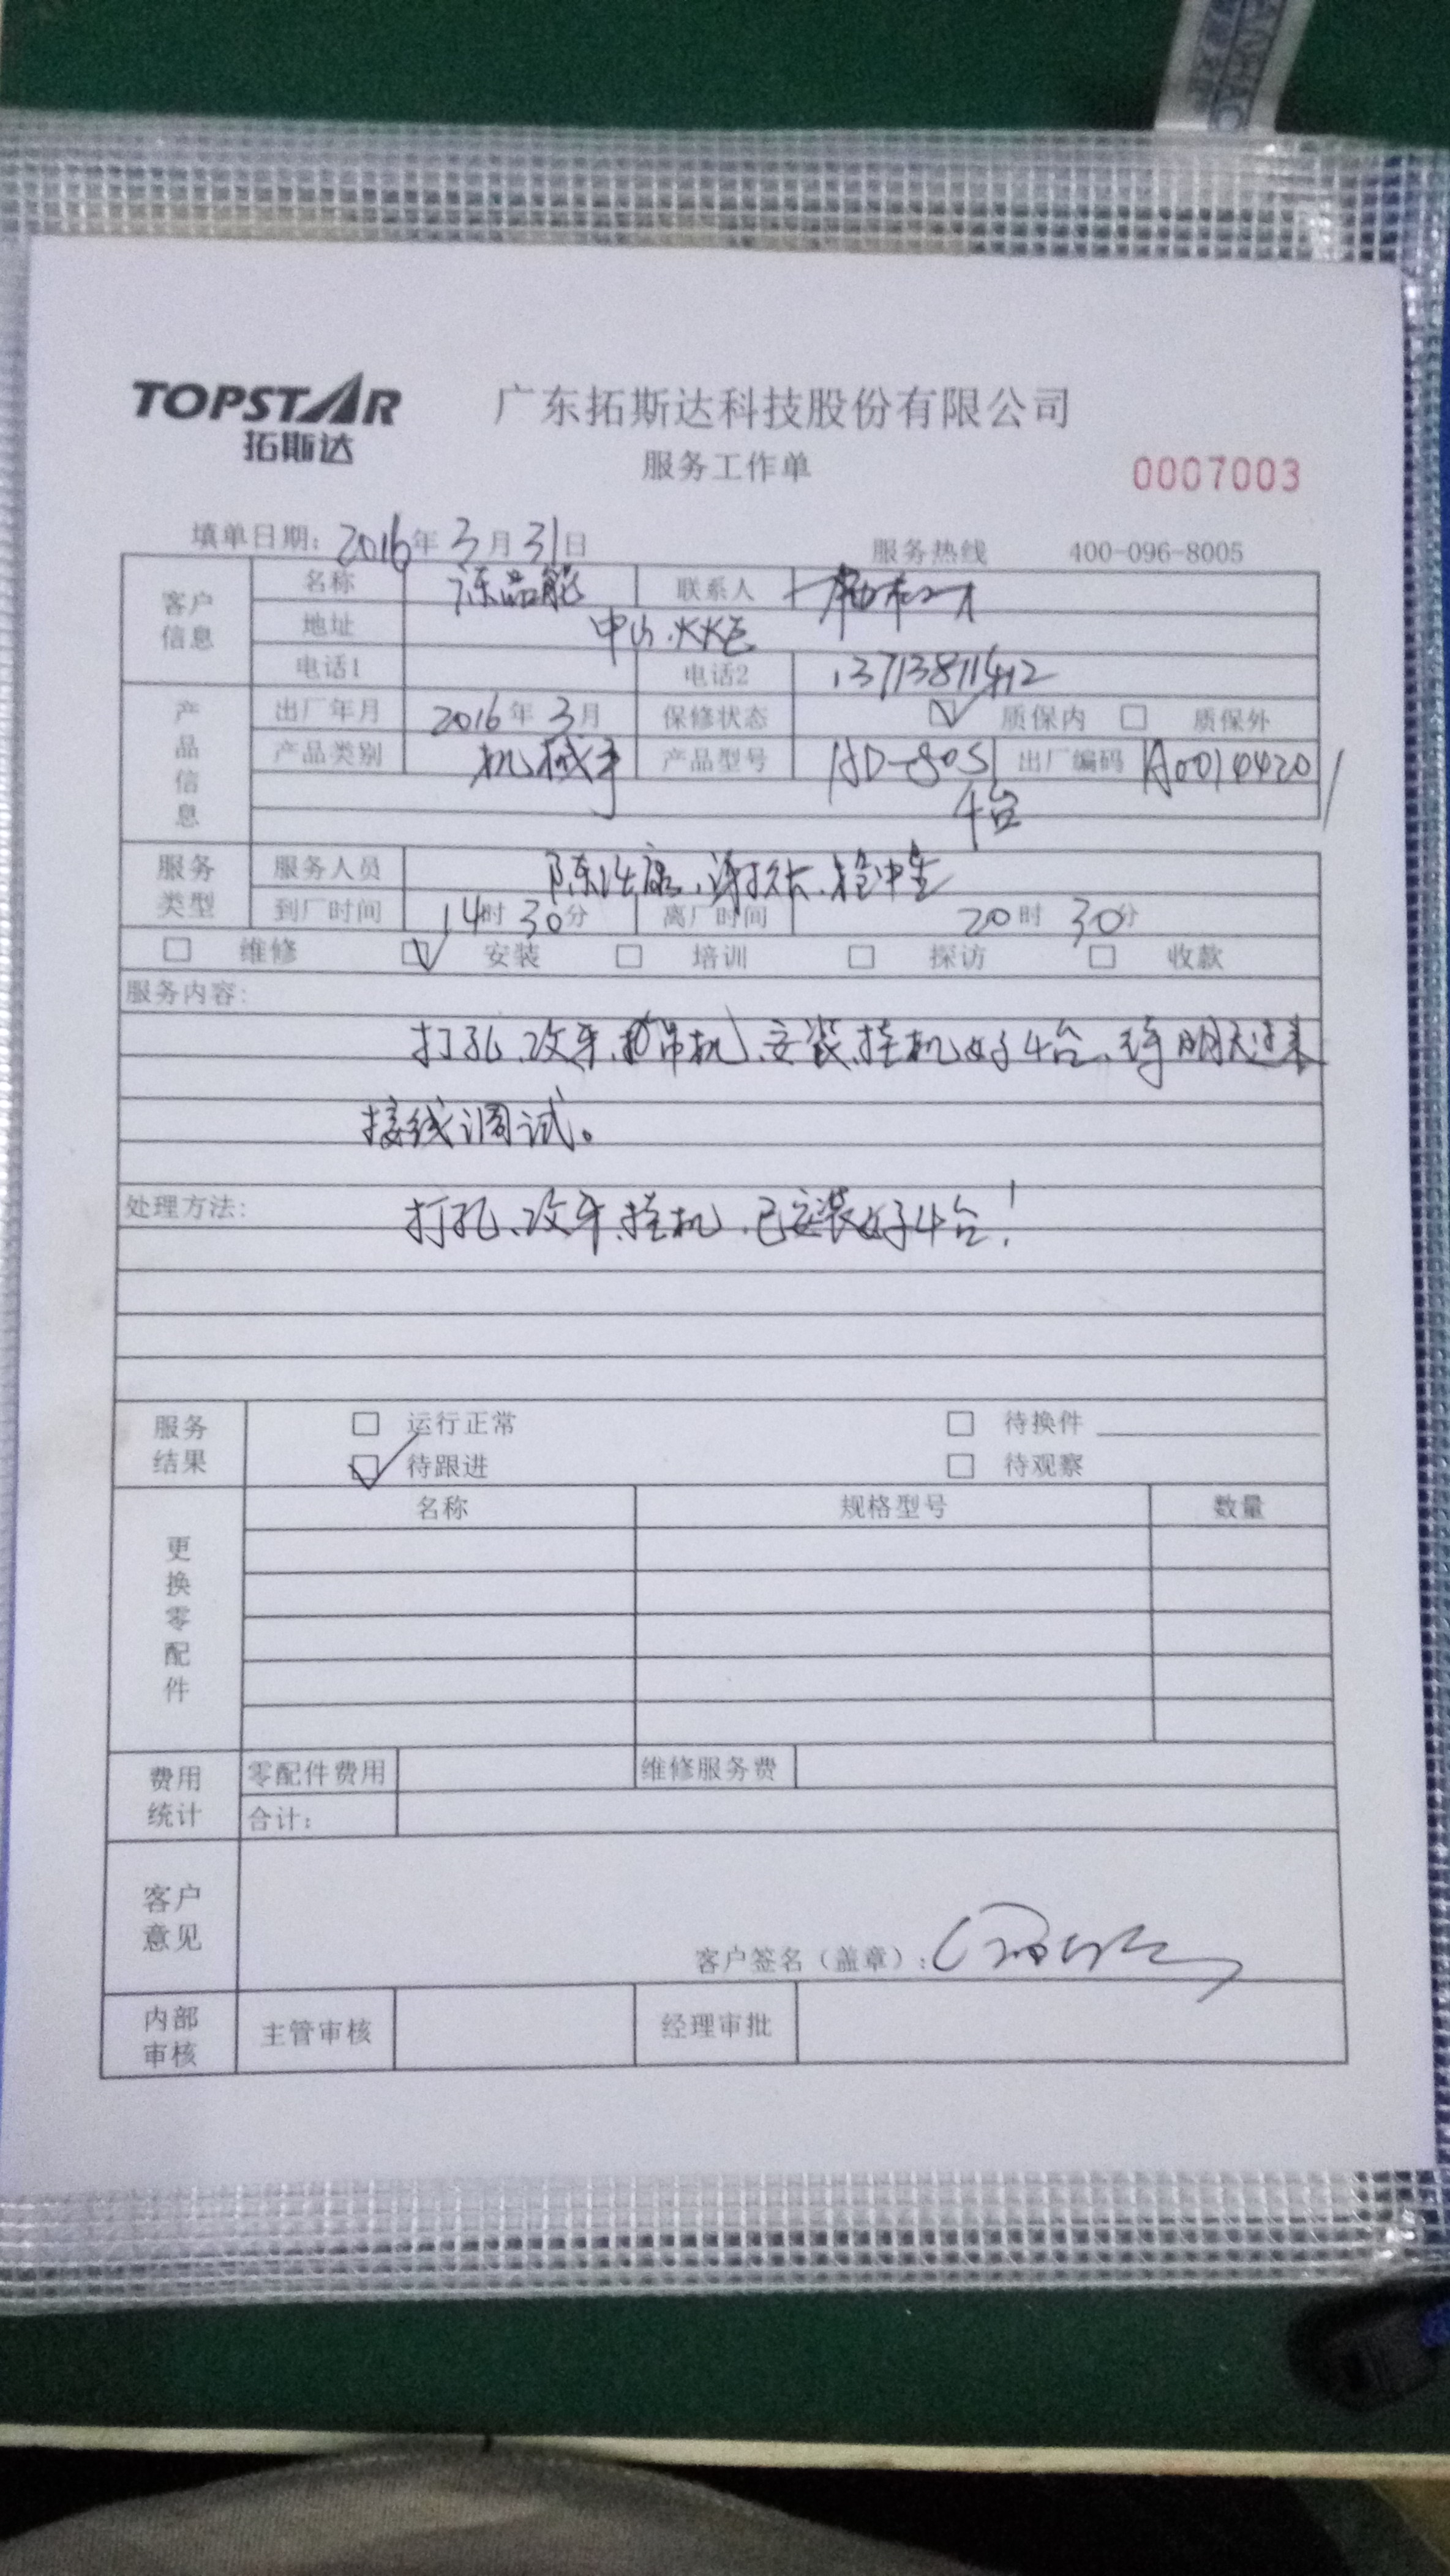 TOPSTAR
拓斯达
广东拓斯达科技股份有限公司
服务工作单
0007003
填单日期: 2016年 3月 31日
服务热线 400-096-8005
客户信息
名称 联系人
地址 中山.火炬
电话1 电话2 13713811412
产品信息
出厂年月 2016年 3月 保修状态 质保内 质保外
产品类别 机械手 产品型号 出厂编码
4台
服务类型
服务人员
到厂时间 14时 30分 离厂时间 20时 30分
维修 安装 培训 探访 收款
服务内容:
打孔、改牙、吊机、安装、挂机好4台、待明天过来
接线调试。
处理方法: 打孔、改牙、挂机、已安装好4台!
服务结果
运行正常 待换件
待跟进 待观察
更换零配件
名称 规格型号 数量
费用统计
零配件费用 维修服务费
合计:
客户意见
客户签名(盖章):
内部审核
主管审核 经理审批